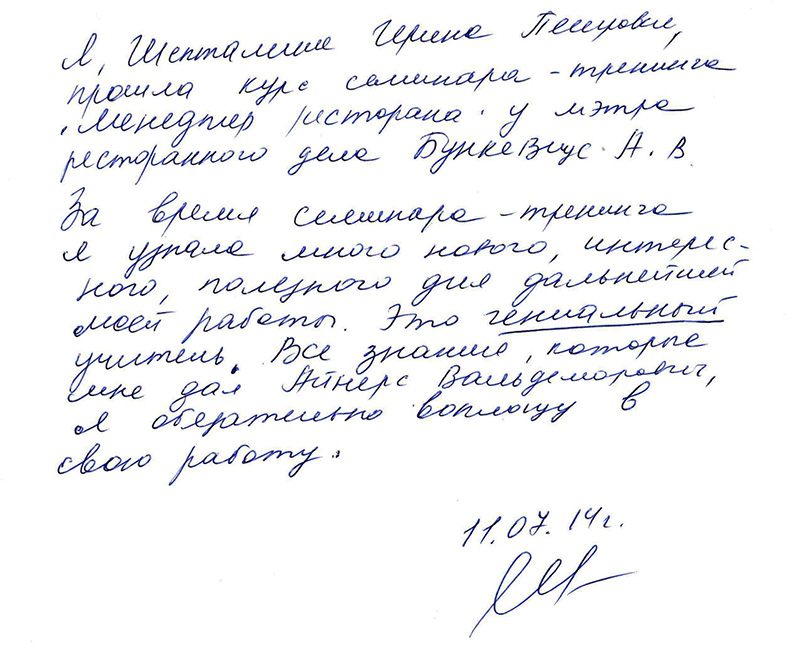 Я, Шепталина Ирина Петровна,
прошла курс семинара-тренинга
"Менеджер ресторана" у мэтра
ресторанного дела Бункевиус А. В.
За время семинара-тренинга
я узнала много нового, интерес-
ного, полезного для дальнейшей
моей работы. Это гениальный
учитель. Все знания, которые
мне дал Айнерс Вальдемарович,
я обязательно воплощу в
свою работу.
11.07.14г.